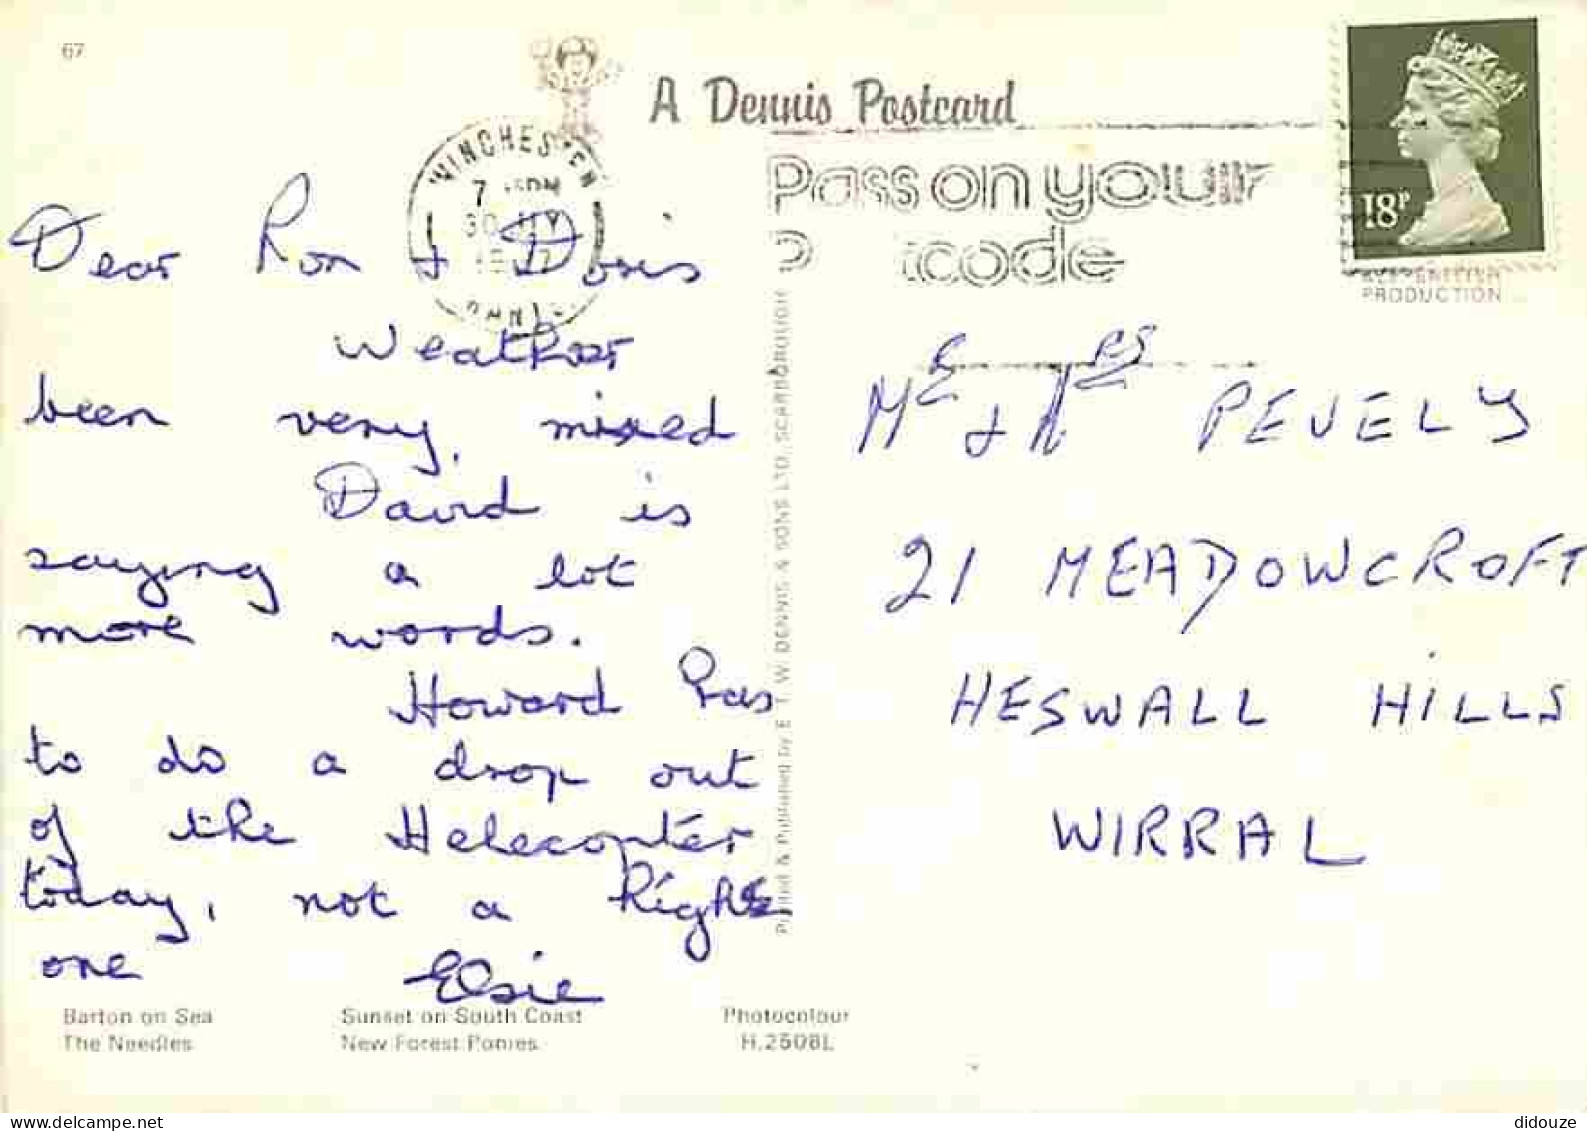 67
A Dennis Postcard
WINCHESTER
7
HANTS
Pass on your
code
18P
ALL BRITISH
PRODUCTION
Dear Ron & Doris
Weather
been very, mixed
David is
saying a lot
more words.
Howard has
to do a drop out
of the Helecopter
today, not a high
one Elsie
Mr & Mrs PEVELY
21 MEADOWCROFT
HESWALL HILLS
WIRRAL
Printed & Published by E. T. W. DENNIS & SONS LTD, SCARBOROUGH
Barton on Sea
The Needles
Sunset on South Coast
New Forest Ponies
Photocolour
H.2508L
didouze